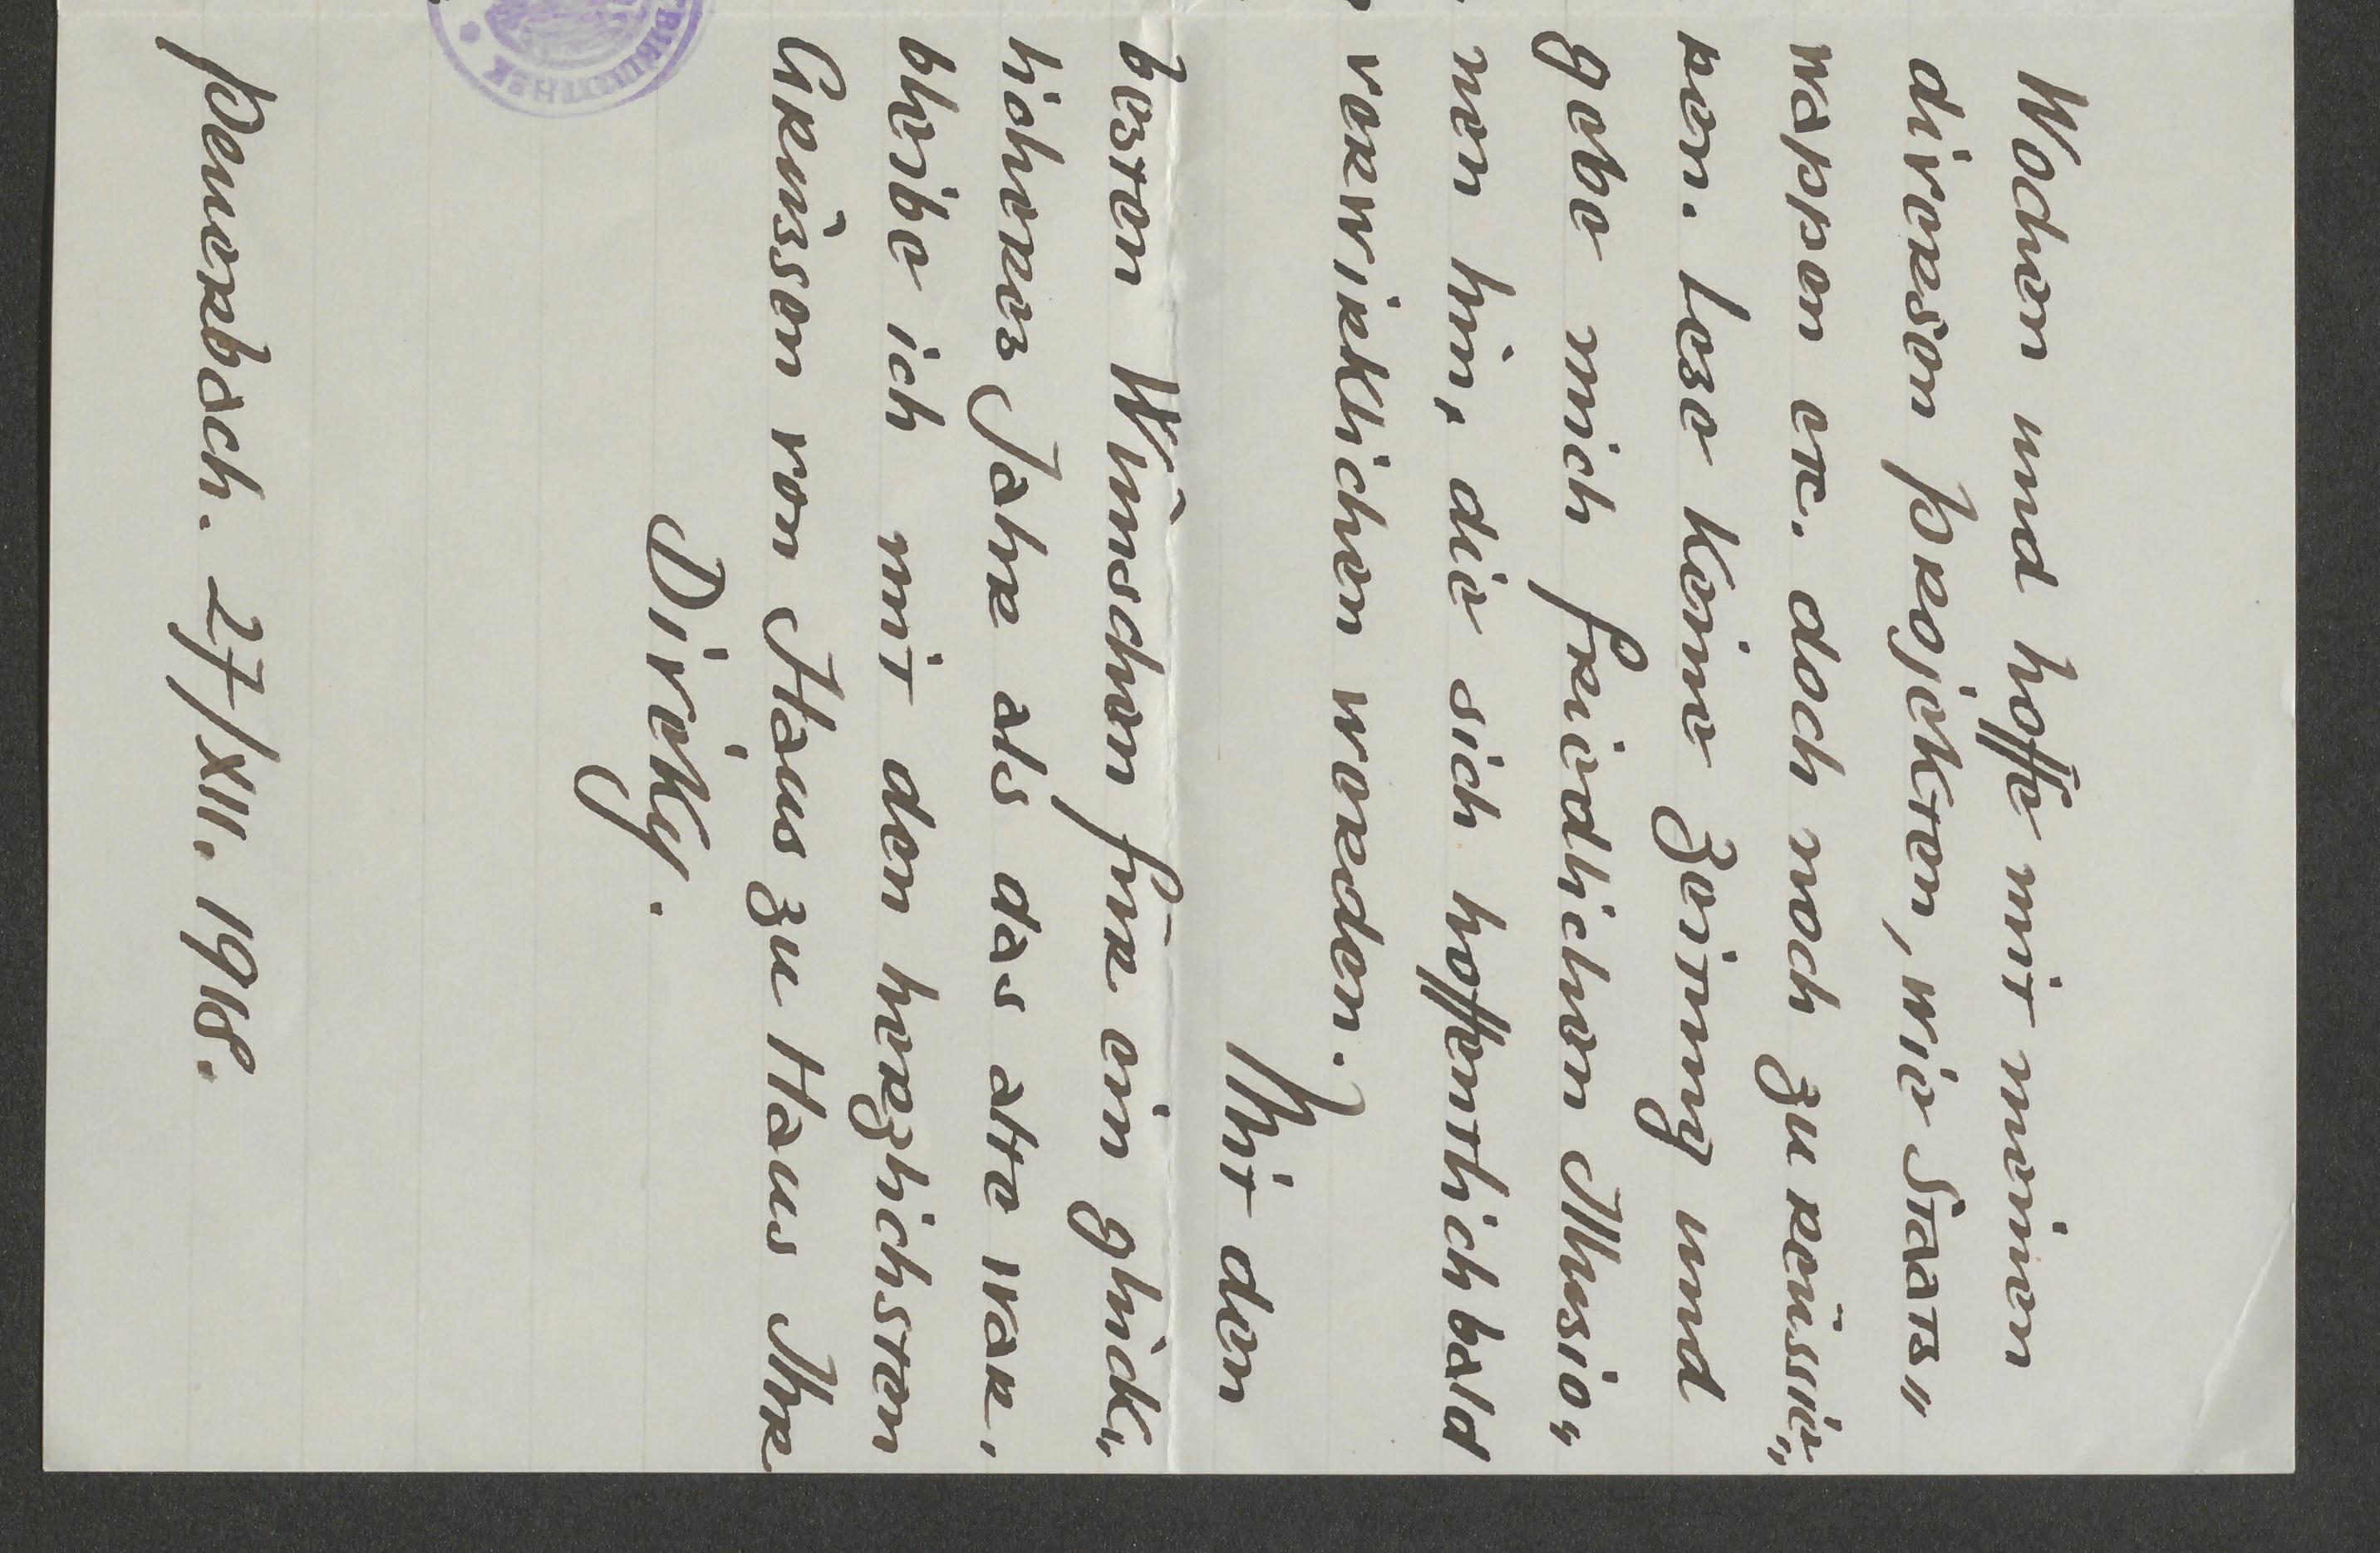 Wochen und hoffe mit meinen
diversen Projekten, wie Staats„
wappen etc. doch noch zu reüssie„
ren. Lese keine Zeitung und
gebe mich friedlichen Illusio„
nen hin, die sich hoffentlich bald
verwirklichen werden.
Mit den
besten Wünschen für ein glück„
licheres Jahr als das alte war,
bleibe ich mit den herzlichsten
Grüssen von Haus zu Haus Ihr
Diveky.
Penerbach. 27/XII. 1918.